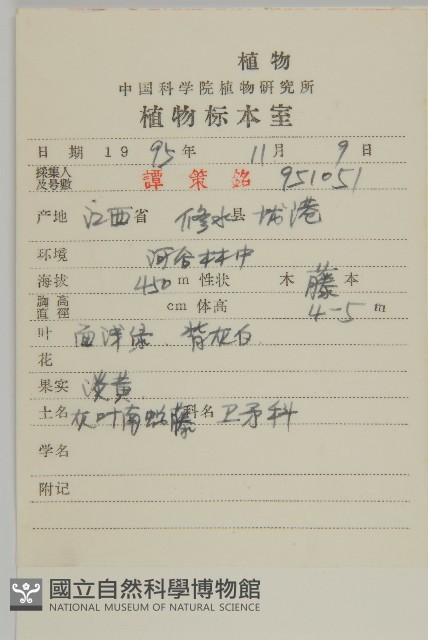 植物
中国科学院植物研究所
植物标本室
日 期 1995年 11月 9日
採集人及号數 譚策銘 951051
产地 江西省 修水县 港
环境 河谷林中
海拔 450 m 性状 木 藤 本
胸高直徑 cm 体高 4-5 m
叶 面浅绿 背灰白
花
果实 淡黄
土名 灰叶南蛇藤 科名 卫矛科
学名
附记
國立自然科學博物館
NATIONAL MUSEUM OF NATURAL SCIENCE